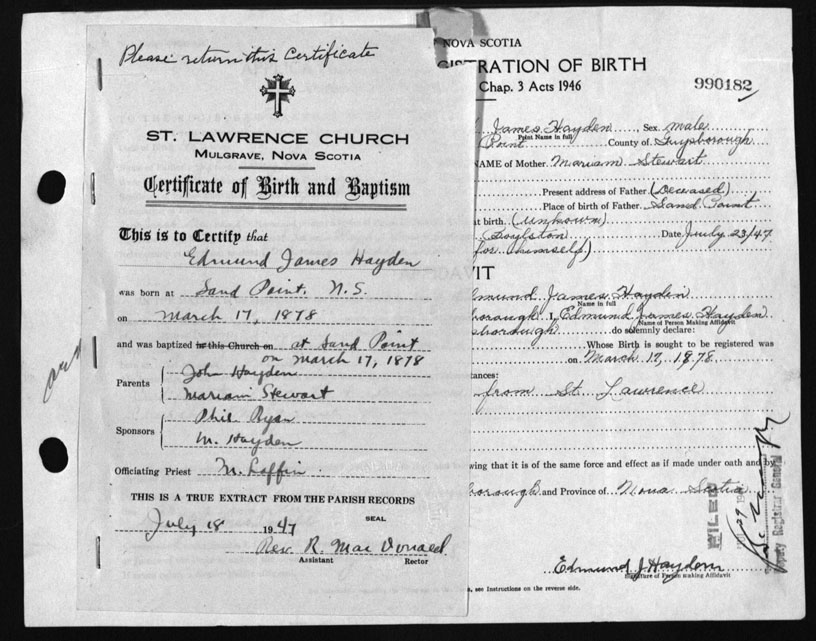 Please return this Certificate
ST. LAWRENCE CHURCH
MULGRAVE, NOVA SCOTIA
Certificate of Birth and Baptism
This is to Certify that
Edmund James Hayden
was born at Sand Point. N.S.
on March 17, 1878
and was baptized in this Church on at Sand Point
on March 17, 1878
Parents
John Hayden
Mariam Stewart
Sponsors
Phil Ryan
M. Hayden
Officiating Priest M. Laffin
THIS IS A TRUE EXTRACT FROM THE PARISH RECORDS
July 18 1947 SEAL
Rev. R. MacDonald
Assistant Rector
NOVA SCOTIA
ISTRATION OF BIRTH
Chap. 3 Acts 1946
990182
James Hayden Sex male
Print Name in full
Point County of Guysborough
NAME of Mother Mariam Stewart
Present address of Father (Deceased)
Place of birth of Father Sand Point
at birth (unknown)
Boylston Date July 23/47
for himself)
VIT
dmund James Hayden
Name in full
borough I, Edmund James Hayden
Name of Person Making Affidavit
sborough do solemnly declare:
Whose Birth is sought to be registered was
on March 17, 1878
tances:
from St. Lawrence
wing that it is of the same force and effect as if made under oath and by
borough and Province of Nova Scotia
FILED
Deputy Registrar General
Edmund J Hayden
Signature of Person making Affidavit
, see Instructions on the reverse side.